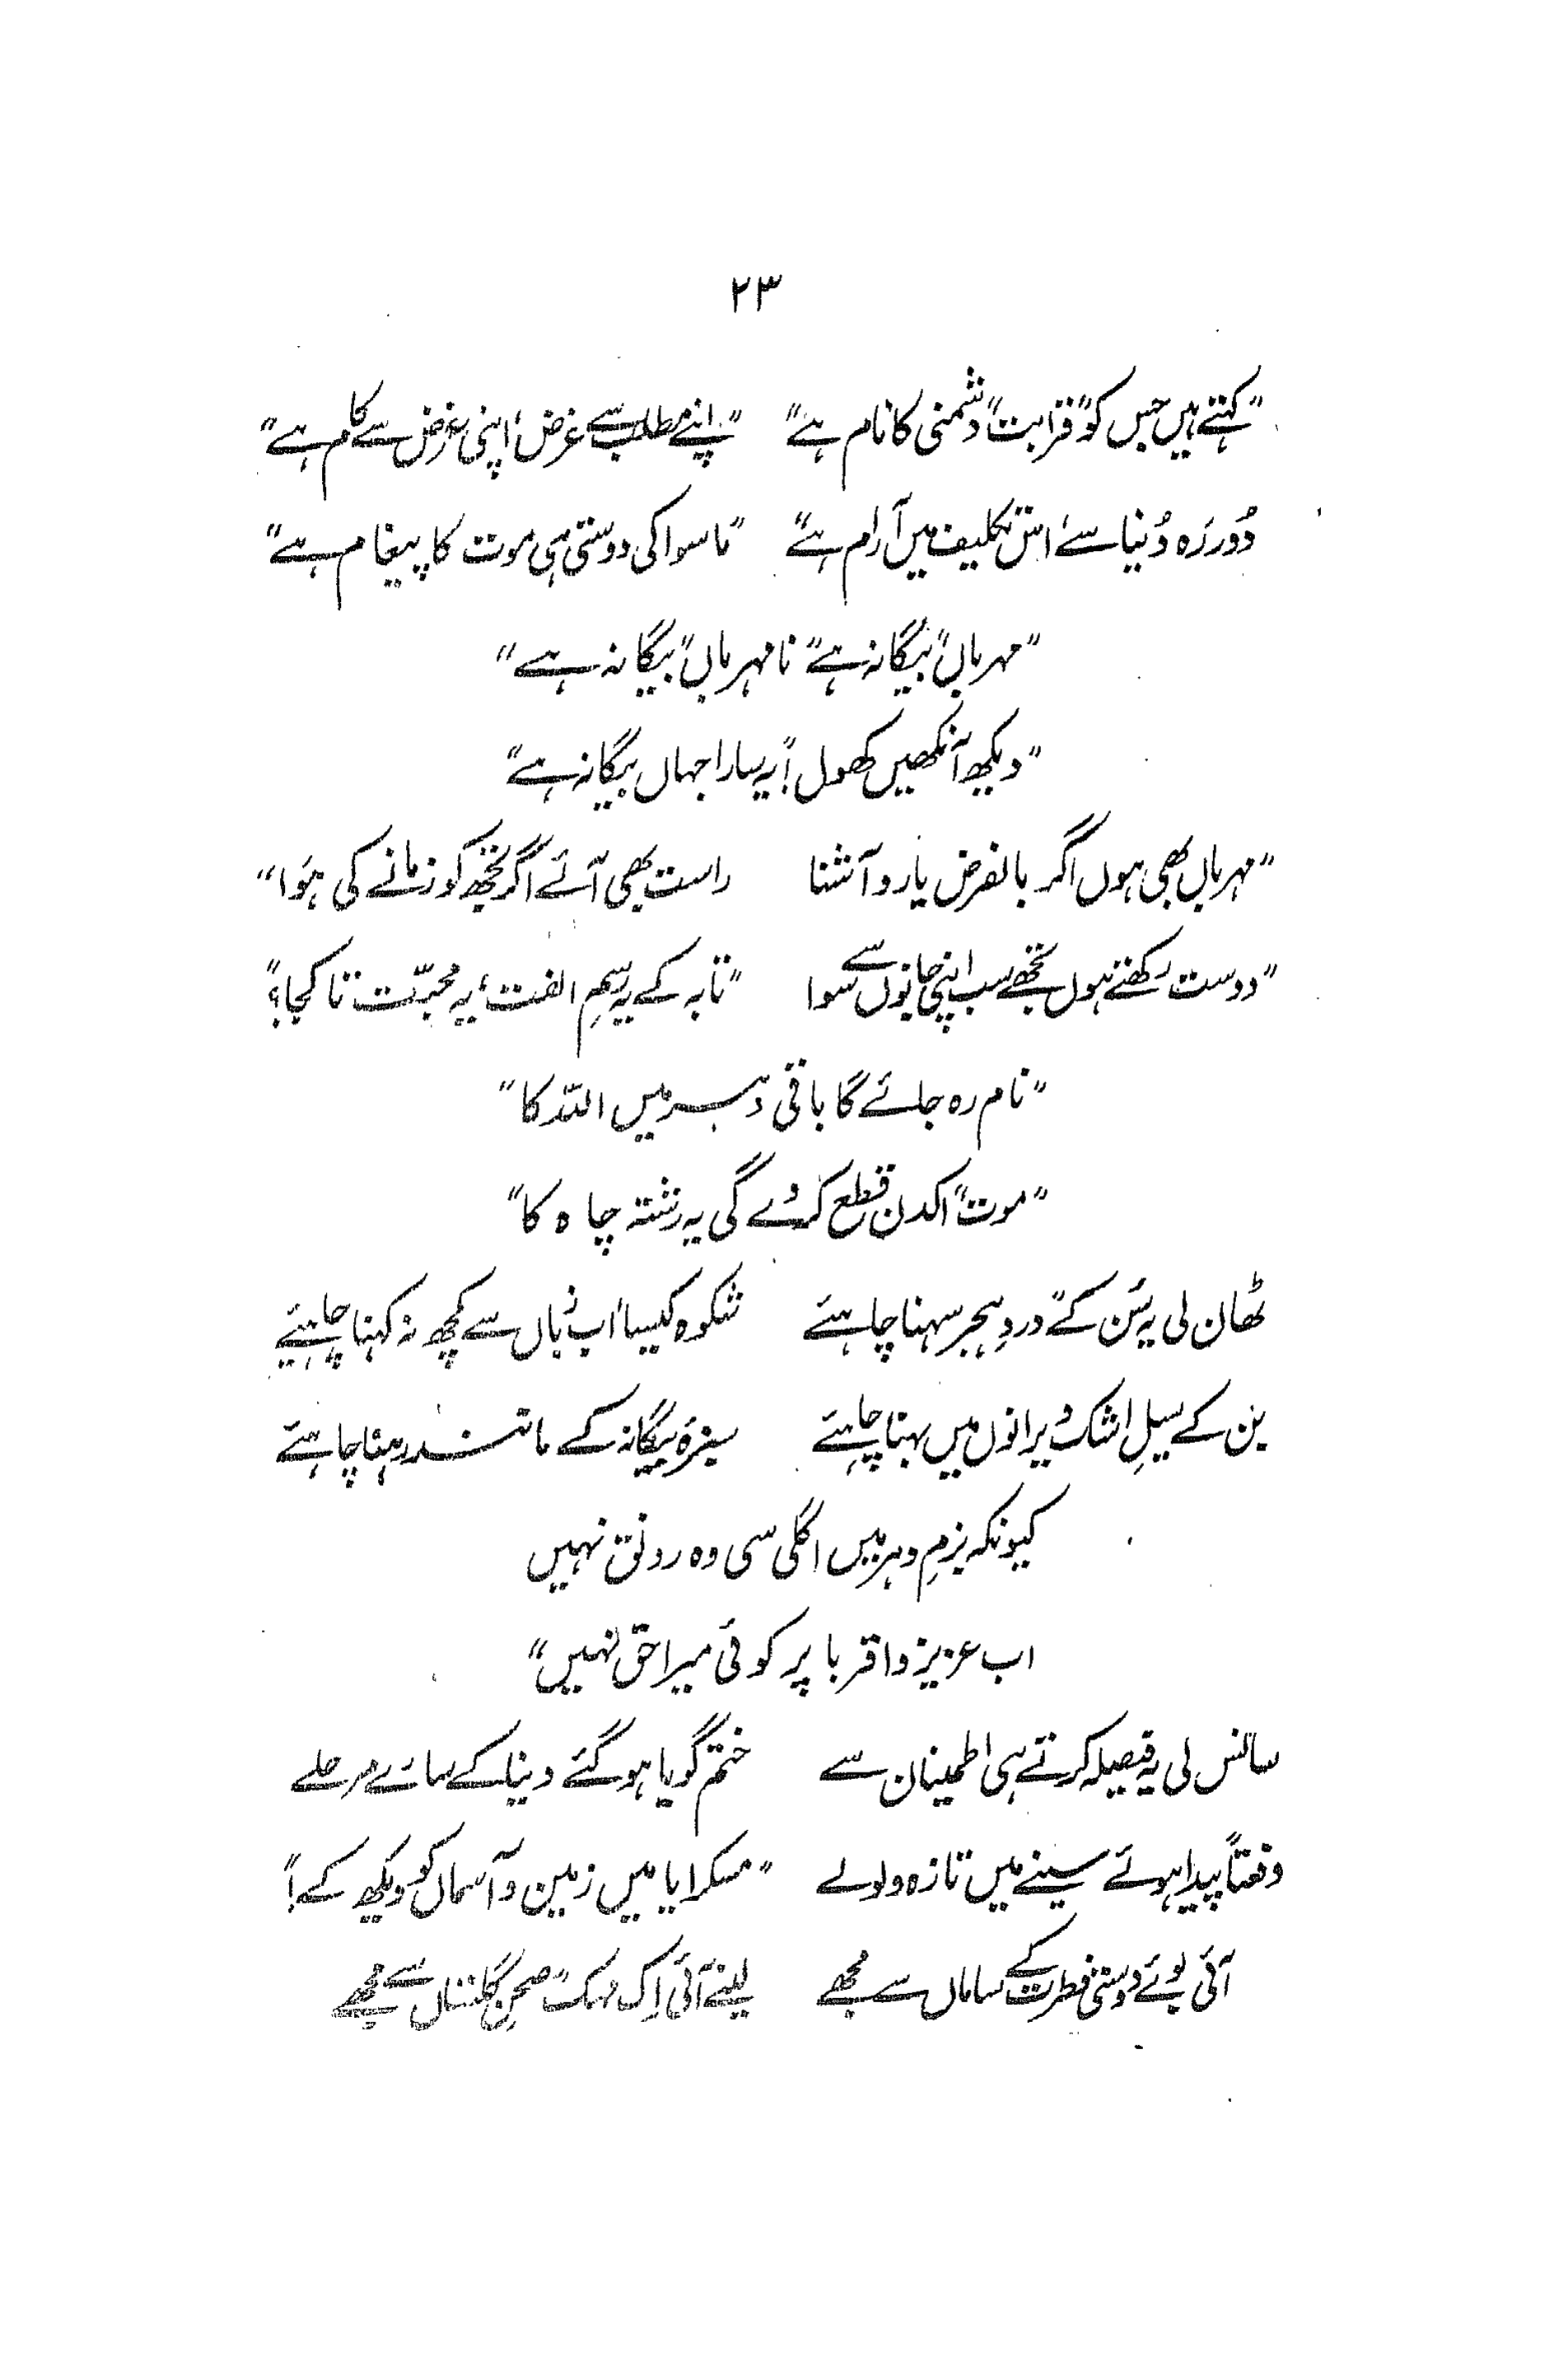 ۲۳
"کہتے ہیں جس کو "قرابت" دشمنی کا نام ہے" "اپنے مطلب سے غرض، اپنی غرض سے کام ہے"
دُور رَہ دُنیا سے، اس تکلیف میں آرام ہے" "ماسوا کی دوستی ہی موت کا پیغام ہے"
"مہرباں" بیگانہ ہے" نامہرباں" بیگانہ ہے"
"دیکھ آنکھیں کھول! یہ سارا جہاں بیگانہ ہے"
"مہرباں بھی ہوں اگر بالفرض یار و آشنا راست بھی آئے اگر تجھ کو زمانے کی ہَوا"
"دوست رکھتے ہوں تجھے سب اپنی جانوں سے سوا "تابہ کے یہ رسمِ الفت، یہ محبّت تا کجا؟"
"نام رہ جائے گا باقی دہر میں اللہ کا"
"موت" اکدن قطع کردے گی یہ رشتہ چاہ کا"
ٹھان لی یہ سُن کے "دردِ ہجر سہنا چاہئے شکوہ کیسا، اب زباں سے کچھ نہ کہنا چاہئیے
بن کے سیلِ اشک ویرانوں میں بہنا چاہئے سبزۂ بیگانہ کے مانند رہنا چاہئے
کیونکہ بزمِ دہر میں اگلی سی وہ رونق نہیں
اب عزیز و اقربا پر کوئی میرا حق نہیں"
سانس لی یہ فیصلہ کرتے ہی اطمینان سے ختم گویا ہو گئے دنیا کے سارے مرحلے
دفعتاً پیدا ہوئے سینے میں تازہ ولولے "مسکرایا میں زمین و آسماں کو دیکھ کے!"
آئی بوئے دوستی فطرت کے ساماں سے مجھے لینے آئی اِک مہک" صحنِ گلستاں سے مجھے